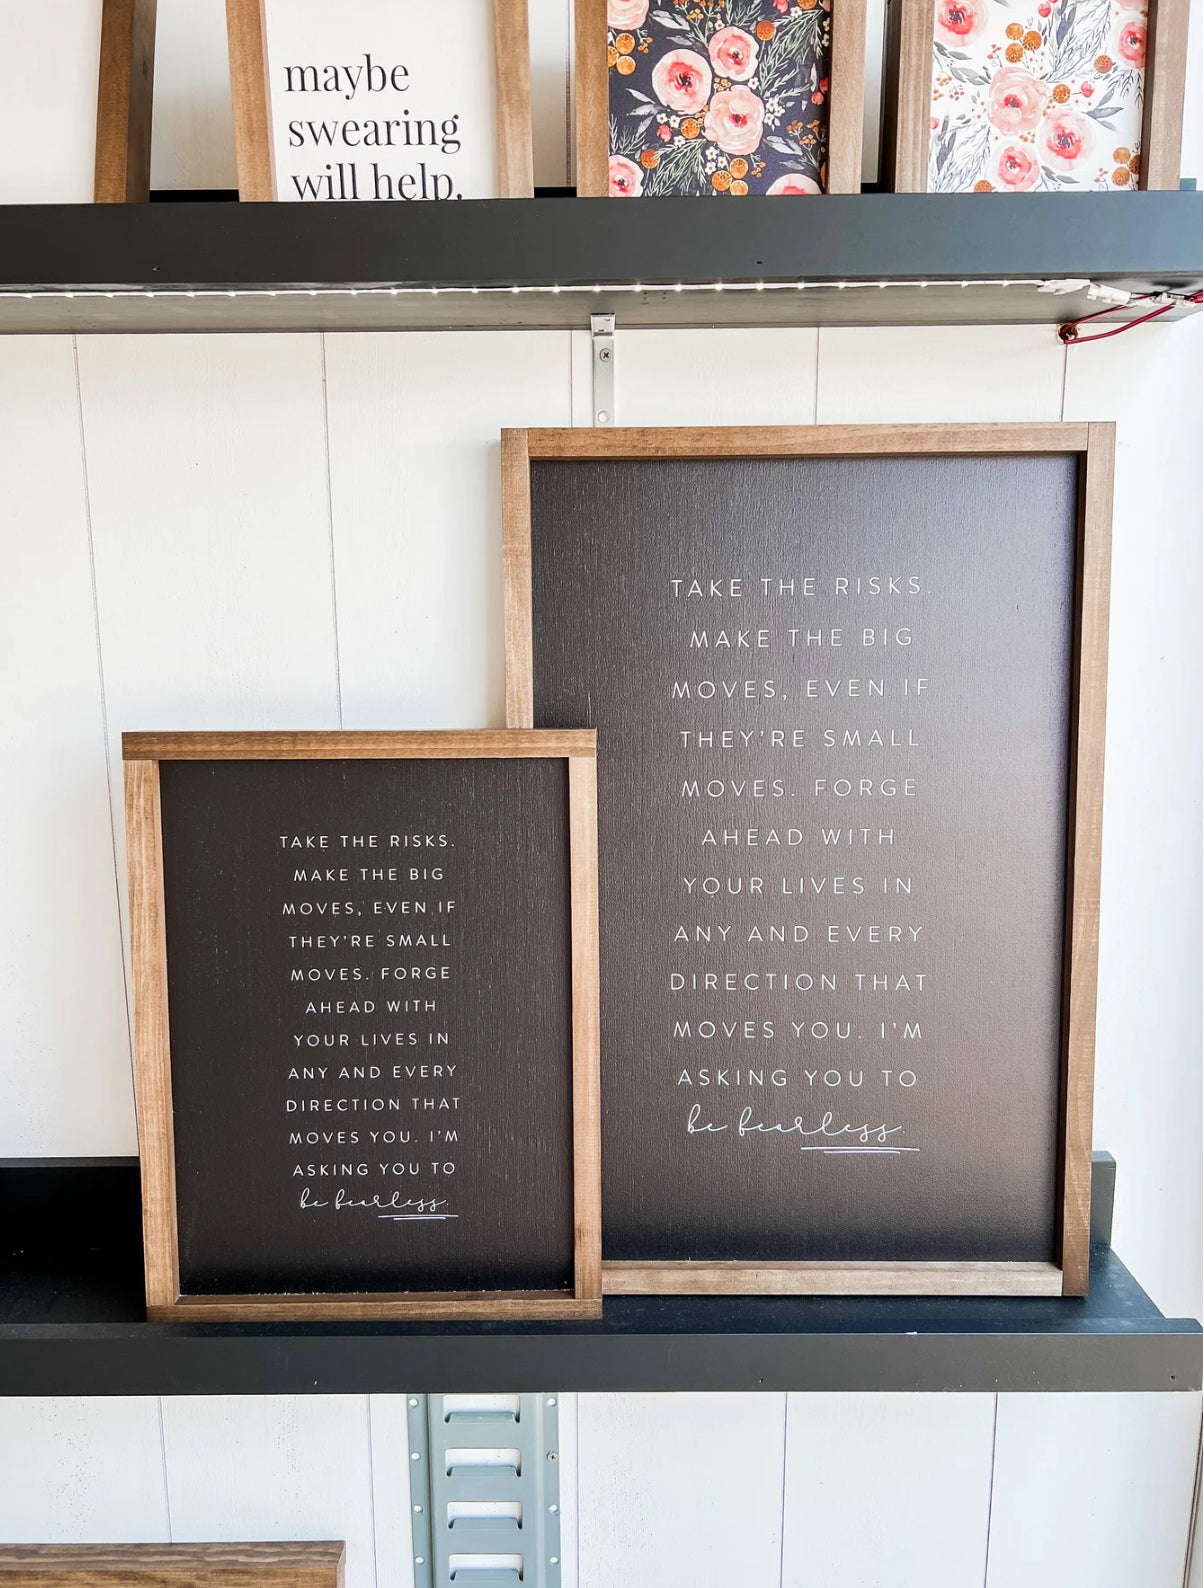 maybe
swearing
will help.
TAKE THE RISKS.
MAKE THE BIG
MOVES, EVEN IF
THEY'RE SMALL
MOVES. FORGE
AHEAD WITH
YOUR LIVES IN
ANY AND EVERY
DIRECTION THAT
MOVES YOU. I'M
ASKING YOU TO
be fearless.
TAKE THE RISKS.
MAKE THE BIG
MOVES, EVEN IF
THEY'RE SMALL
MOVES. FORGE
AHEAD WITH
YOUR LIVES IN
ANY AND EVERY
DIRECTION THAT
MOVES YOU. I'M
ASKING YOU TO
be fearless.